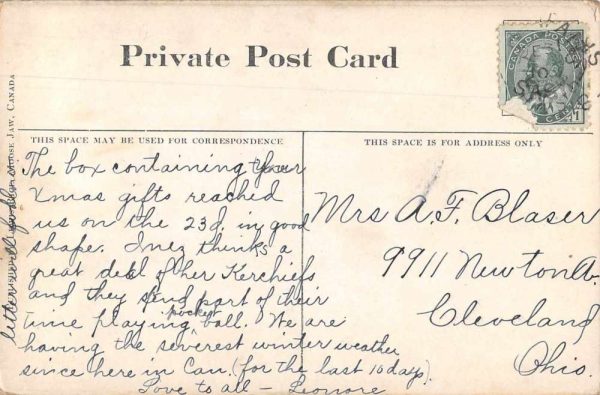 Private Post Card
CANADA POSTAGE
THIS SPACE MAY BE USED FOR CORRESPONDENCE
THIS SPACE IS FOR ADDRESS ONLY
The box containing your
Xmas gifts reached
us on the 23d. in good
shape. Inez thinks a
great deal of her Kerchiefs
and they spend part of their
time playing pocket ball. We are
having the severest winter weather
since here in Can. (for the last 10 days).
Love to all - Leonore
letter will
Mrs A.F. Blaser
9911 Newton Av.
Cleveland
Ohio.
JAW, CANADA